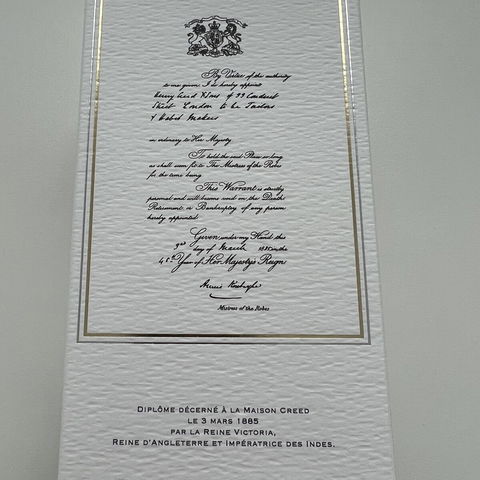 By Virtue of the authority
to me given I do hereby appoint
Henry Creed & Sons of 33 Conduit
Street London to be Tailors
& Habit Makers
in ordinary to Her Majesty
To hold the said Place so long
as shall seem fit to The Mistress of the Robes
for the time being
This Warrant is strictly
personal and will become void on the Death
Retirement or Bankruptcy of any person
hereby appointed
Given under my Hand this
3rd day of March 1885 in the
Year of Her Majesty's Reign
Mistress of the Robes
DIPLÔME DÉCERNÉ À LA MAISON CREED
LE 3 MARS 1885
PAR LA REINE VICTORIA,
REINE D'ANGLETERRE ET IMPÉRATRICE DES INDES.